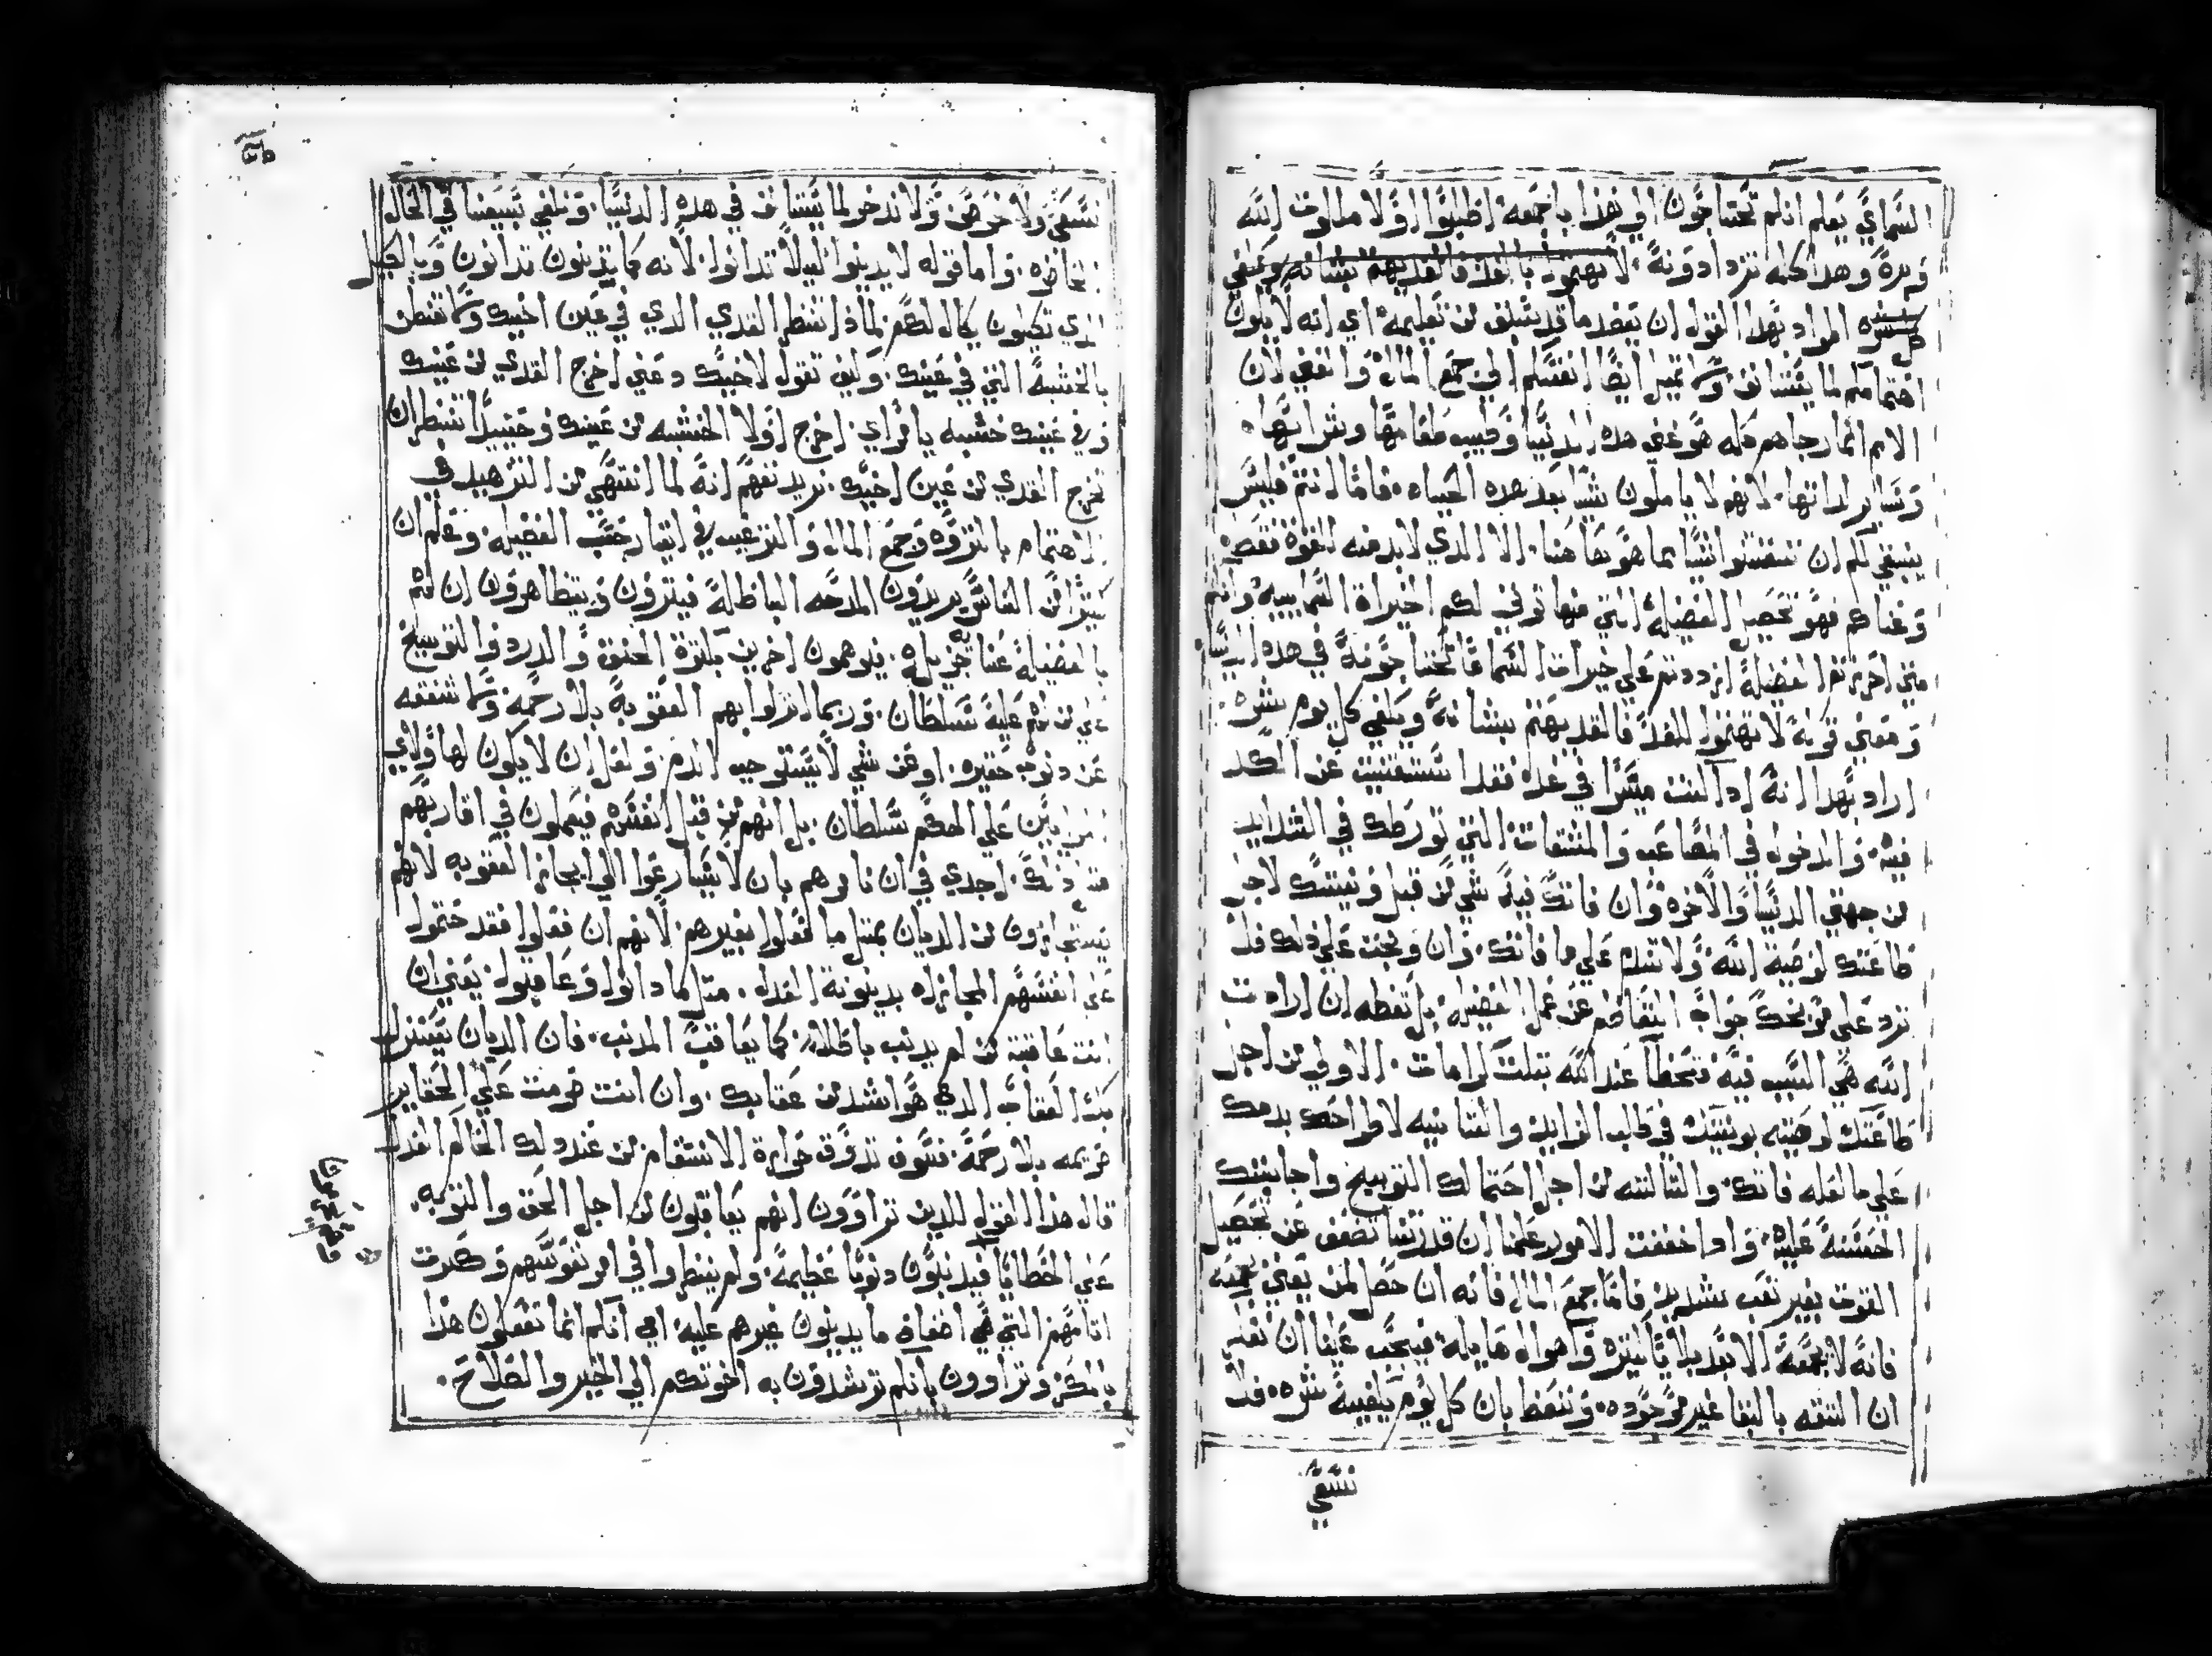 السماي يعلم انكم تحتاجون الي هذا باجمعه اطلبوا اولا ملكوت الله
وبره وهذا كله تزدادونه لا تهتموا بالغد فالغد يهتم بشانه ويكفي
كل شره المراد بهذا القول ان يعضد ما قد سلف من تعليمه اي انه لا يكون
اهتمامكم لما يستانف ولا تميل ايضا انفسكم الي جمع المال والقني لان
الامم انما رجاهم كله هو غني هذه الدنيا وطيب طعامها وشرابها
وساير لداتها لانهم لا ياملون شيا بعد هده الحياه فاما انتم فليس
ينبغي لكم ان تقتنوا شيا مما هو هاهنا الا الدي لابد منه القوة فقط
وغناكم فهو تحصيل الفضيلة التي منها توفي لكم الخيراة السماييه وانكم
متي احرزتم الفضيلة ازددتم علي خيرات السما ما تحتاجونة في هده الدنيا
ومعني قوله لا تهتموا للغد فالغد يهتم بشانه ويكفي كل يوم شره
اراد بهدا انه ادا كنت ميسرا في غده فقد استغنيت عن الكد
فيه والدخول في المصاعب والمشقات التي تورطك في الشدايد
من جهتي الدنيا والاخره وان فاتك فيه شي من قبل ونيتك لاجل
طاعتك لوصية الله ولا تندم علي ما فاتك وان وبخت علي دلك فلا
ترد علي موبخك جواب التقاطع عن عمل الفضيله بل تعطه ان ارادت
الله هي السبب فيه فتحظا عند الله بتلت كرامات الاولي من اجل
طاعتك لوصيته بونيتك في طلب الزايد والتانيه لاطراحك بدمك
علي ما لعله فاتك والتالته من اجل احتمالك التوبيخ واجابتك
الحسنة عليه وادا خففت الامور علمنا ان قدرتنا تضعف عن تحصيل
القوت بغير تعب شديد فاما جمع المال فانه ان حصل لمن يعني بجمعه
فانة لا يجمعة الا بعد بلايا كتيره واهوال هايله فيجب علينا ان نعلم
ان التقه بالبقا غير موجوده ونتعظ بان كل يوم يكفية شره فلا
نسقي
نسقي ولا نحرص ولا ندخر لما يستانف في هده الدنيا ونكفي بسيفنا في الحال
الحاضره واما قوله لا يدينوا ليلا تدانوا لانه كما يدينون تدانون وبالكيل
الدي تكيلون يكال لكم لمادا تنظر القدي الدي في عين اخيك ولا تفطن
بالخشبة التي في عينك وكيف تقول لاخيك دعني اخرج القدي من عينك
وفي عينك خشبه يا مراي اخرج اولا الخشبه من عينك وحينيد تنظر ان
تخرج القدي من عين اخيك يريد نفهم انه لما انتهي من التزهيد في
الاهتمام بالتروه وجمع المال والترغيب في ايتار حب الفضيله وعلم ان
كثيرا من الناس يريدون المدحه الباطلة فيترون ويتظاهرون ان لهم
بالفضيلة عناية جزيله فيوهمون اخرين بكترة الحنق والدرد والتوبيخ
علي من لهم علية سلطان وربما انزلوا بهم العقوبة بلا رحمة ولا شفقه
عن دنوب حقيره او عن شي لا يستوجب الدم ولعل ان لا يكون لهاولاي
المرايين علي الحكم سلطان بل انهم من قبل انفسهم فيعملون في اقاربهم
متل دلك اجدي في ان نامرهم بان لا يسارعوا الي ايجاز العقوبه لانهم
سيجازون من الديان بمتل ما فعلوا بغيرهم لانهم ان فعلوا فقد ختموا
علي انفسهم المجازاه بدينونة الغداه متل ما دانوا وعاقبوا يعني ان
انت عاقبت من لم يدنب باطلا كما يعاقب المدنب فان الديان يستنزل
بك العقاب الدي هو اشد من عقابك وان انت غرمت علي الحقاير
غريمه بلا رحمة فسوف تدوق حرارة الانتقام من عند دلك الحاكم العدل
قال هدا القول للدين تراوون انهم يعاقبون من اجل الحق والتوبه
علي الخطايا فيدنبون دنوبا عظيمة ولم ينظروا في امر نفوسهم وكترت
اتامهم التي هي اضعاف ما يدينون غيرهم عليه اي انكم انما تفعلون هدا
بالمكر وتراوون بانكم ترشدون به اخوتكم الي الخير والصلاح